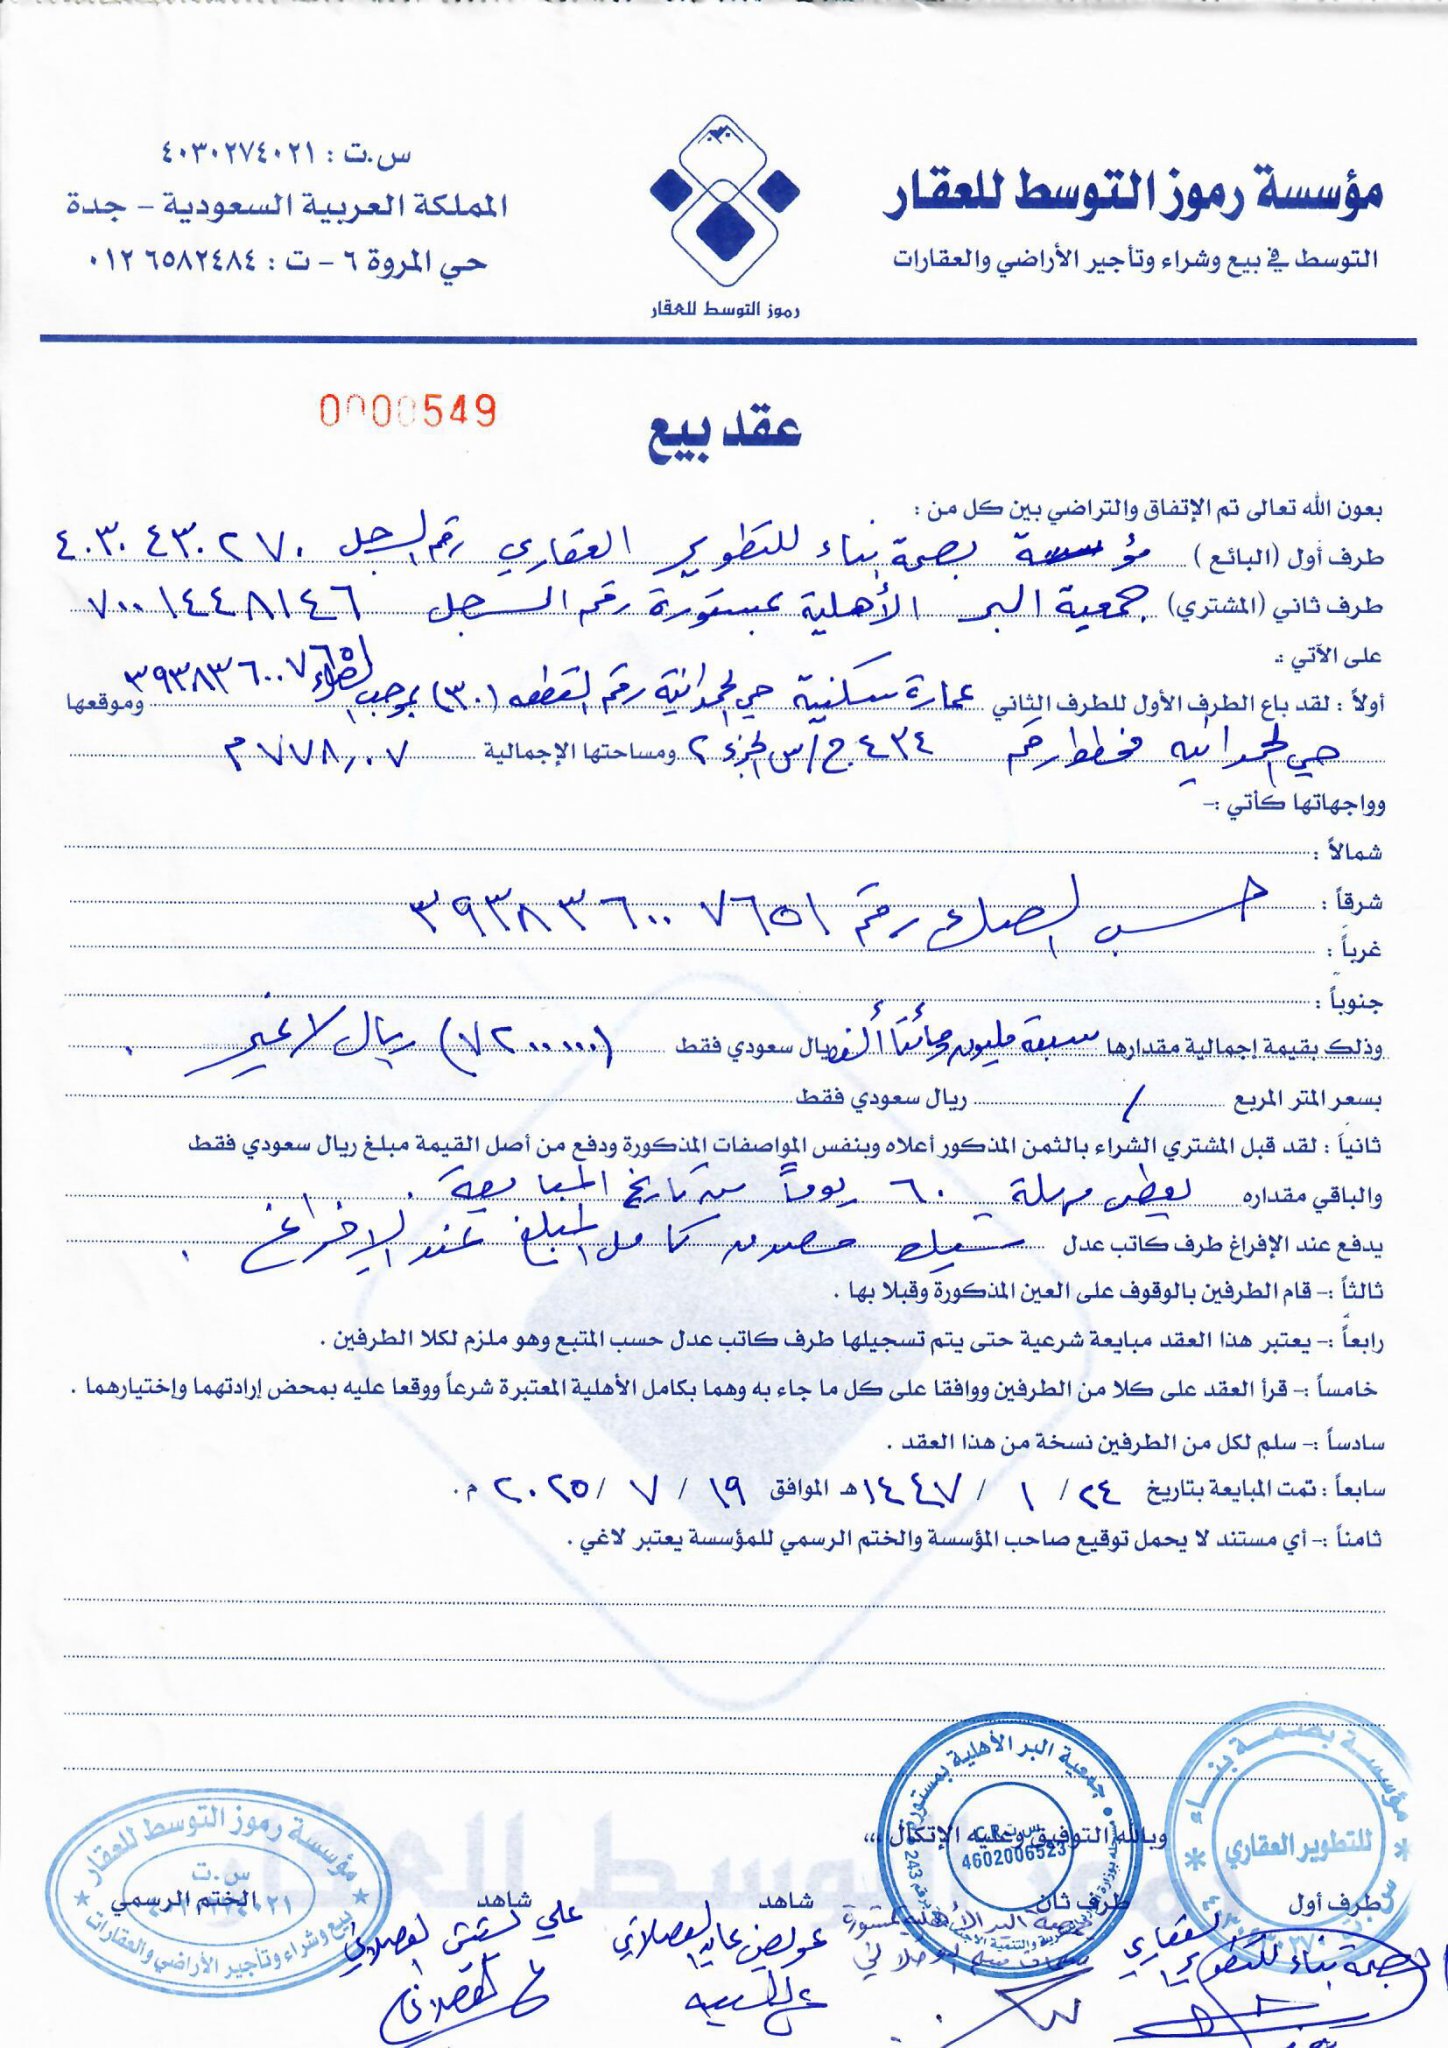 مؤسسة رموز التوسط للعقار
التوسط في بيع وشراء وتأجير الأراضي والعقارات
رموز التوسط للعقار
س.ت : ٤٠٣٠٢٧٤٠٢١
المملكة العربية السعودية - جدة
حي المروة ٦ - ت : ٠١٢٦٥٨٢٤٨٤
عقد بيع
0000549
بعون الله تعالى تم الإتفاق والتراضي بين كل من :
طرف أول (البائع) مؤسسة بصمة بناء للتطوير العقاري رقم السجل ٤٠٣٠٤٣٠٢٧٠
طرف ثاني (المشتري) جمعية البر الأهلية بمستورة رقم السجل ٧٠٠١٤٤٨١٤٦
على الآتي :-
أولاً : لقد باع الطرف الأول للطرف الثاني عمارة سكنية حي الحمدانية رقم القطعه (٣٠) بموجب الصك ٣٩٣٨٣٦٠٠٧٦٥ وموقعها
حي الحمدانيه مخطط رقم ٤٣٤ ج/س الجزء ٢ ومساحتها الإجمالية ٧٧٨,٠٧ م
وواجهاتها كأتي :-
شمالاً :
شرقاً : حسب الصك رقم ٣٩٣٨٣٦٠٠٧٦٥١
غرباً :
جنوباً :
وذلك بقيمة إجمالية مقدارها سبعة مليون ومائتا ألف ريال سعودي فقط (٧٢٠٠٠٠٠) ريال لا غير .
بسعر المتر المربع / ريال سعودي فقط
ثانياً : لقد قبل المشتري الشراء بالثمن المذكور أعلاه وبنفس المواصفات المذكورة ودفع من أصل القيمة مبلغ ريال سعودي فقط
والباقي مقداره يعطى مهلة ٦٠ يوماً من تاريخ المبايعة .
يدفع عند الإفراغ طرف كاتب عدل شيك مصدق كامل المبلغ عند الإفراغ .
ثالثاً :- قام الطرفين بالوقوف على العين المذكورة وقبلا بها .
رابعاً :- يعتبر هذا العقد مبايعة شرعية حتى يتم تسجيلها طرف كاتب عدل حسب المتبع وهو ملزم لكلا الطرفين .
خامساً :- قرأ العقد على كلا من الطرفين ووافقا على كل ما جاء به وهما بكامل الأهلية المعتبرة شرعاً ووقعا عليه بمحض إرادتهما وإختيارهما .
سادساً :- سلم لكل من الطرفين نسخة من هذا العقد .
سابعاً : تمت المبايعة بتاريخ ٢٤ / ١ / ١٤٤٧ هـ الموافق ١٩ / ٧ / ٢٠٢٥ م .
ثامناً :- أي مستند لا يحمل توقيع صاحب المؤسسة والختم الرسمي للمؤسسة يعتبر لاغي .
وبالله التوفيق وعليه الإتكال ،،،
طرف أول
طرف ثان
شاهد
شاهد
الختم الرسمي
بصمة بناء للتطوير العقاري
جمعية البر الأهلية بمستورة
مؤسسة بصمة بناء
للتطوير العقاري
جمعية البر الأهلية بمستورة
س.ت C.R
4602006523
مؤسسة رموز التوسط للعقار
س.ت
بيع وشراء وتأجير الأراضي والعقارات